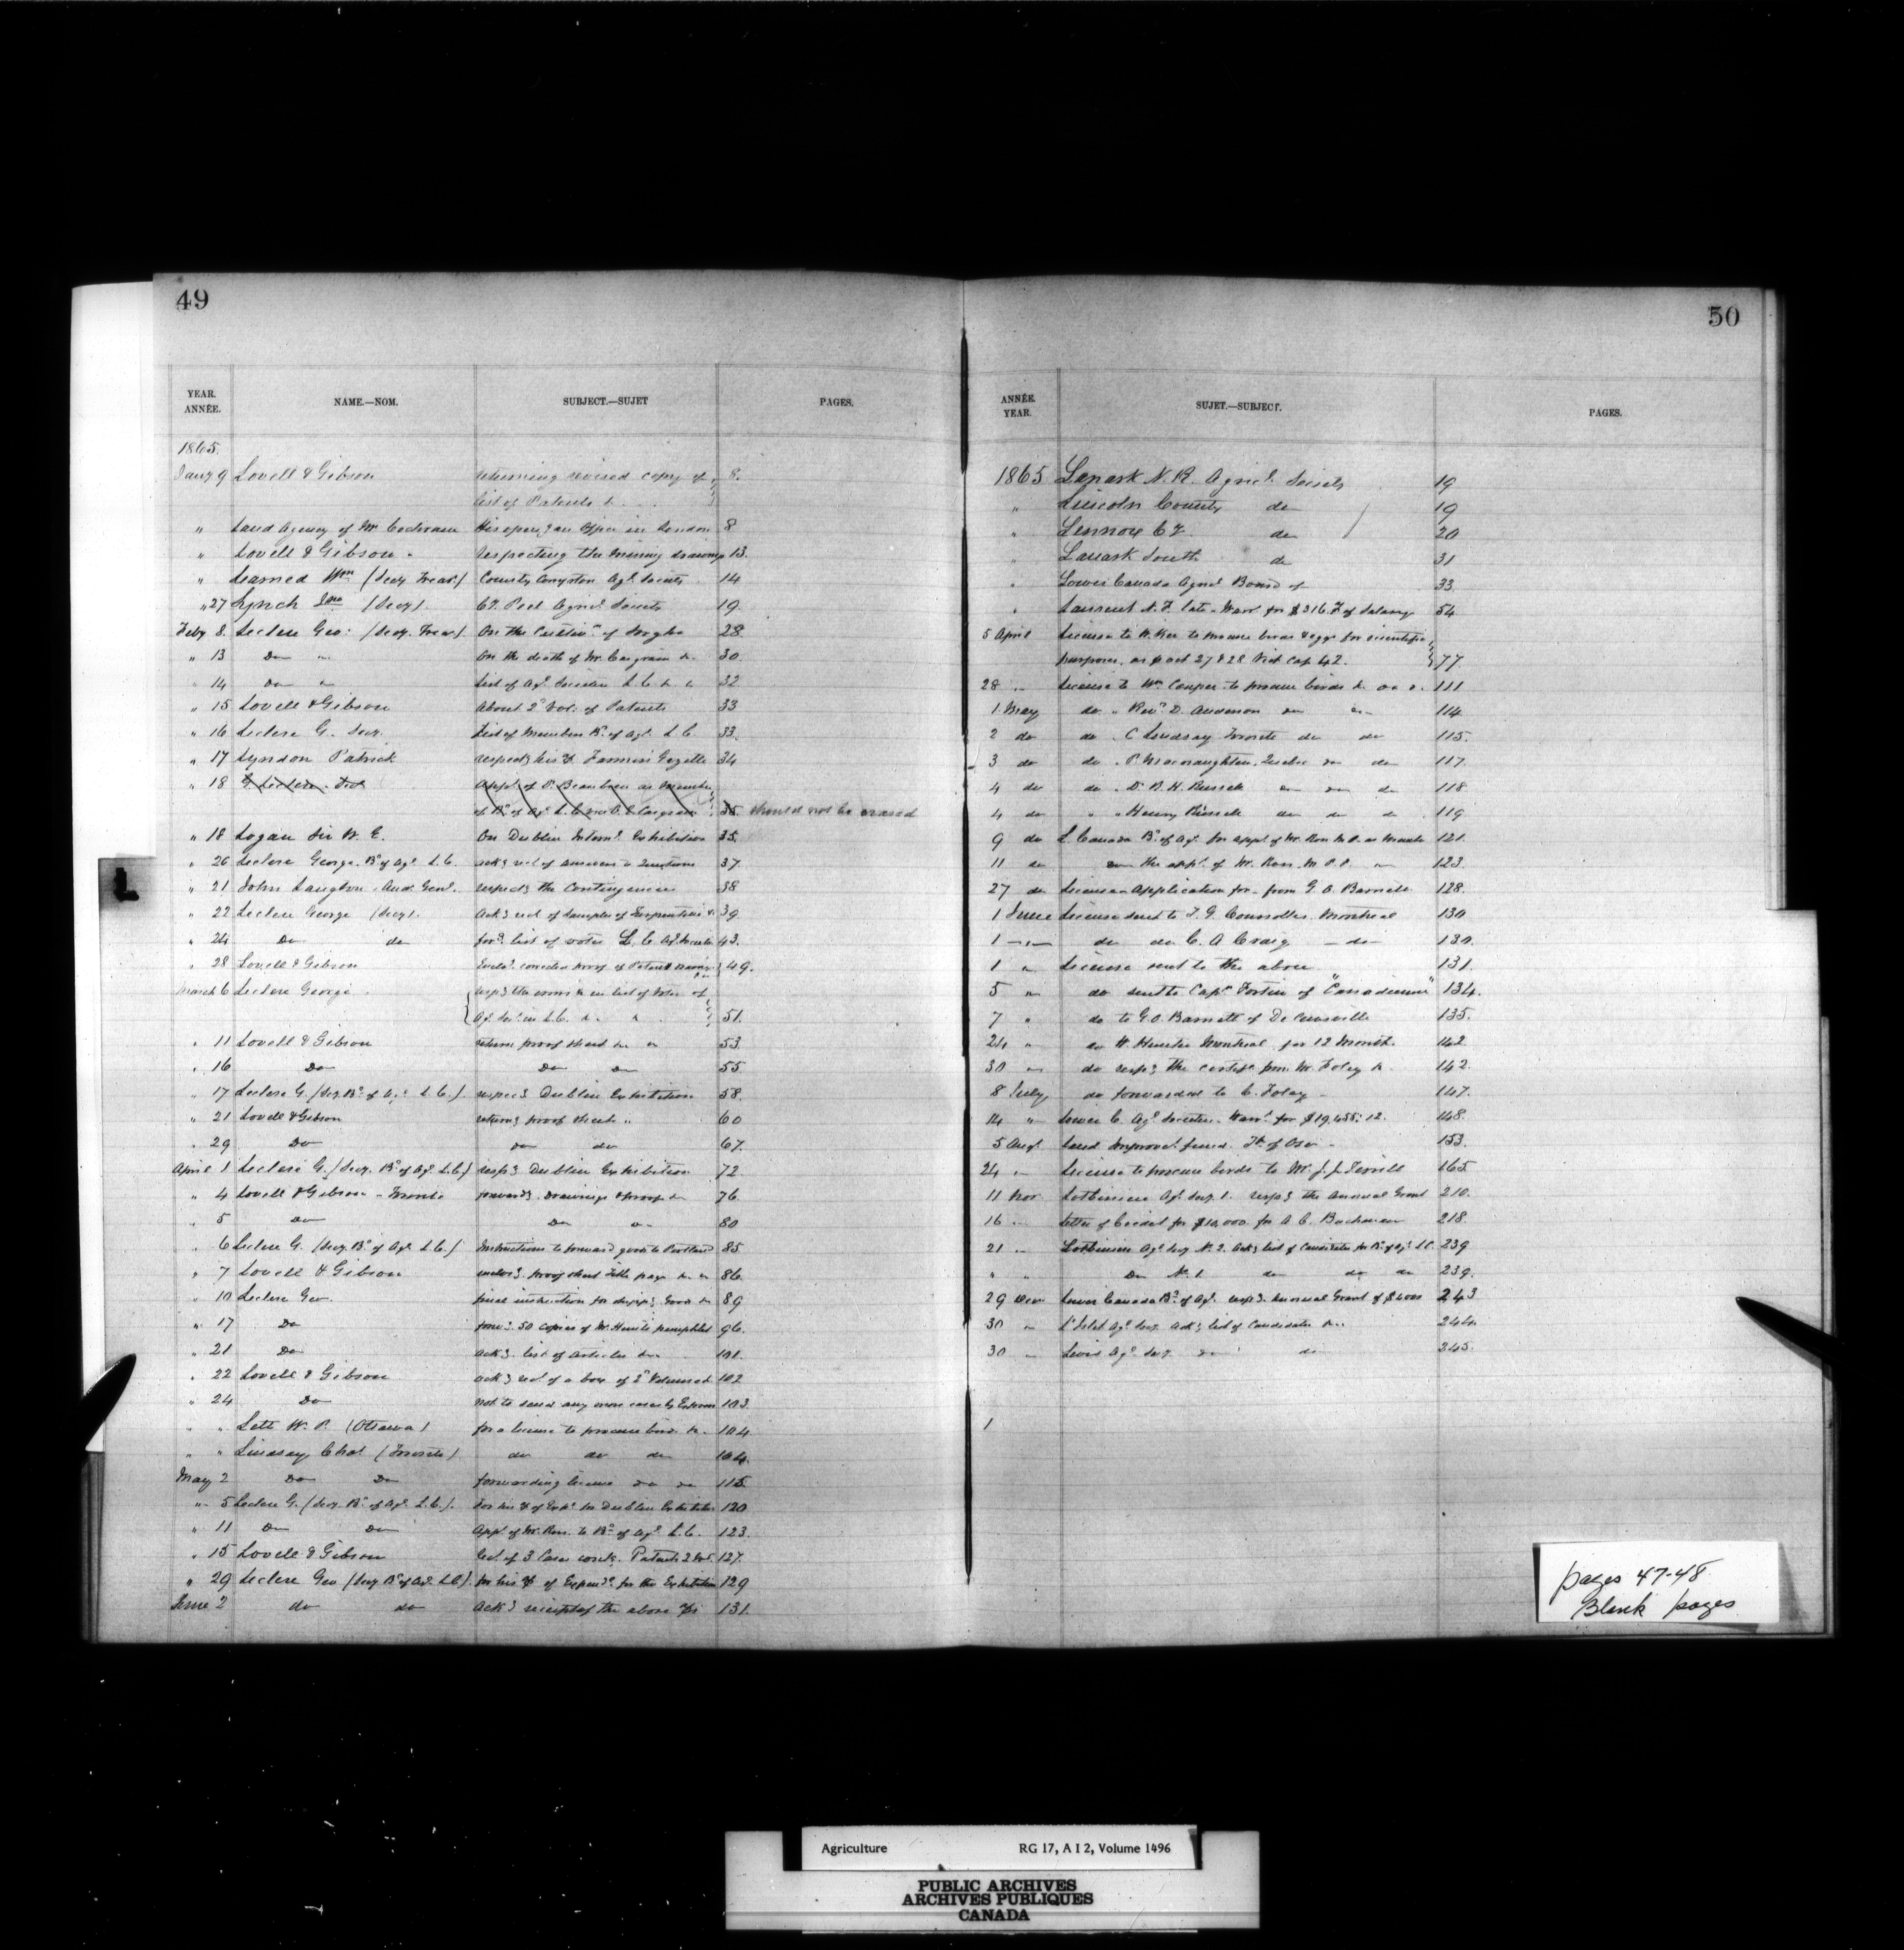 49
YEAR. ANNÉE. NAME.—NOM. SUBJECT.—SUJET PAGES.
1865.
Jany 9 Lovell & Gibson returning revised copy of 8.
list of Patents &
" Land Agency of Mr Cochrane His opens an Office in London 8
" Lovell & Gibson - respecting the missing drawings 13.
" Learned Wm (Secy Treas.) County Compton Agl. Society 14
" 27 Lynch Jno (Secy). Cy. Peel Agricl. Society 19.
Feby 8. Leclere Geo: (Secy. Treas). On the Cultivn of Sorgho 28.
" 13 Do " On the death of Mr. Casgrain &c 30
" 14 Do " List of Agl. Societies L. C. &c 32
" 15 Lovell & Gibson About 2d Vol: of Patents 33
" 16 Leclere G. Secy. List of Members Bd. of Agl. L. C. 33.
" 17 Lyndon Patrick respects his % Farmers Gazette 34
" 18 G. Leclere. Sec Appt. of P. Beaubien as Member
of Bd. of Agl. L. C. vice O. E. Casgrain 35. should not be erased
" 18 Logan Sir W. E. On Dublin Internl. Exhibition 35.
" 20 Leclere George. Bd of Agl. L. C. ackg recd of answers to Questions 37.
" 21 John Langton. Aud. Genl. respectg the Contingencies 38
" 22 Leclere George (Secy). Ackg recd. of Samples of Serpentine &c 39.
" 24 Do do forwg list of votes L. C. Agl. Societies 43.
" 28 Lovell & Gibson Enclg. corrected proof of Patent drawings 49.
March 6 Leclere George respg the errors &c in list of votes of
Agl. Soc. in L. C. &c 51.
" 11 Lovell & Gibson return proof sheet &c 53.
" 16 Do Do Do 55
" 17 Leclere G. (Secy. Bd. of Agl. L. C.) respecg Dublin Exhibition 58.
" 21 Lovell & Gibson returng proof sheets " 60
" 29 Do do do 67.
April 1 Leclere G. (Secy. Bd. of Agl. L. C.) respg Dublin Exhibition 72
" 4 Lovell & Gibson - Toronto forwardg. Drawings & proof &c 76.
" 5 Do Do 80
" 6 Leclere G. (Secy. Bd. of Agl. L. C.) Instructions to forward goods to Portland 85.
" 7 Lovell & Gibson enclosg. proof sheet Title page &c 86.
" 10 Leclere Geo final instruction for shippg. Goods &c 89
" 17 Do forwg. 50 copies of Mr. Hunt's pamphlet 96.
" 21 Do Ackg. list of Articles &c 101.
" 22 Lovell & Gibson ackg recd. of a box of 2d Volumes 102
" 24 Do not to send any more cases by Express 103.
" " Lett W. P. (Ottawa) for a license to procure birds &c. 104
" " Lindsay Chas. (Toronto) do do do 104.
May 2 Do Do forwarding license do do 115.
" 5 Leclere G. (Secy. Bd. of Agl. L. C.). For his % of Expn. for Dublin Exhibition 120
" 11 Do Do Appt. of Mr. Ross to Bd. of Agl. L. C. 123.
" 15 Lovell & Gibson Recd. of 3 Cases containg. Patents 2 Vol. 127.
" 29 Leclere Geo (Secy Bd of Agl. L. C.) for his % of Expendr. for the Exhibition 129
June 2 do do Ackg receipt of the above %s 131.
50
ANNÉE. YEAR. SUJET.—SUBJECT. PAGES.
1865 Lanark N. R. Agricl. Society 19
" Lincoln County do 19
" Lennox Cy. do 20
" Lanark South do 31
" Lower Canada Agricl. Board of 33.
" Laurent N. F. late - Warrt for $316. of Salary 54
5 April License to to procure birds & eggs for scientific
purposes, as p act 27 & 28 Vict Cap 42. 77.
28 " License to Wm Couper to procure birds &c 111
1 May do " Revd. D. Anderson do 114
2 do do . C Lindsay Toronto do do 115.
3 do do . P. Macnaughton. Quebec do do 117
4 do do . D. B. H. Russell do do do 118
4 do " . Henry Russell do do do 119
9 do L. Canada Bd. of Agl. for appt. of Mr. Ross M.P. as Member 121.
11 do do the appt. of Mr. Ross. M. P. P. 123.
27 do License - Application for - from G. O. Barnett 128.
1 June License sent to J. G. Coursolles Montreal 130
1 " do do C. A Craig - do - 130.
1 " License sent to the above 131.
5 " do sent to Capn. Fortin of "Canadienne" 134.
7 " do to G. O. Barnett of 135.
24 " do W. Hunter Montreal for 12 Months. 142
30 " do respg the certife. from M. Foley &c 142.
8 July do forwarded to C. Foley 147.
14 " Lower C. Agl. Societies. Warrt. for $19,455.12. 148.
5 Augt. Land Improvt. fund. 153.
24 " License to procure birds to Mr. 165
11 Nov Lotbiniere Agl. Socy. 1. respg the Annual Grant 210.
16 " Letter of Credit for $10,000 for A C. Buchanan 218.
21 " Lotbiniere Agl. Socy No. 2. Ackg list of Candidates for Bd. of Agl. L C. 239
" " Do No. 1 do do do 239.
29 Decr Lower Canada Bd. of Agl. respg. Annual Grant of $4000 243
30 " L'Islet Agl. Socy. Ackg list of Candidates &c 244.
30 " Levis Agl. Socy. do do 245.
L
pages 47-48
Blank pages
Agriculture RG 17, A I 2, Volume 1496
PUBLIC ARCHIVES
ARCHIVES PUBLIQUES
CANADA